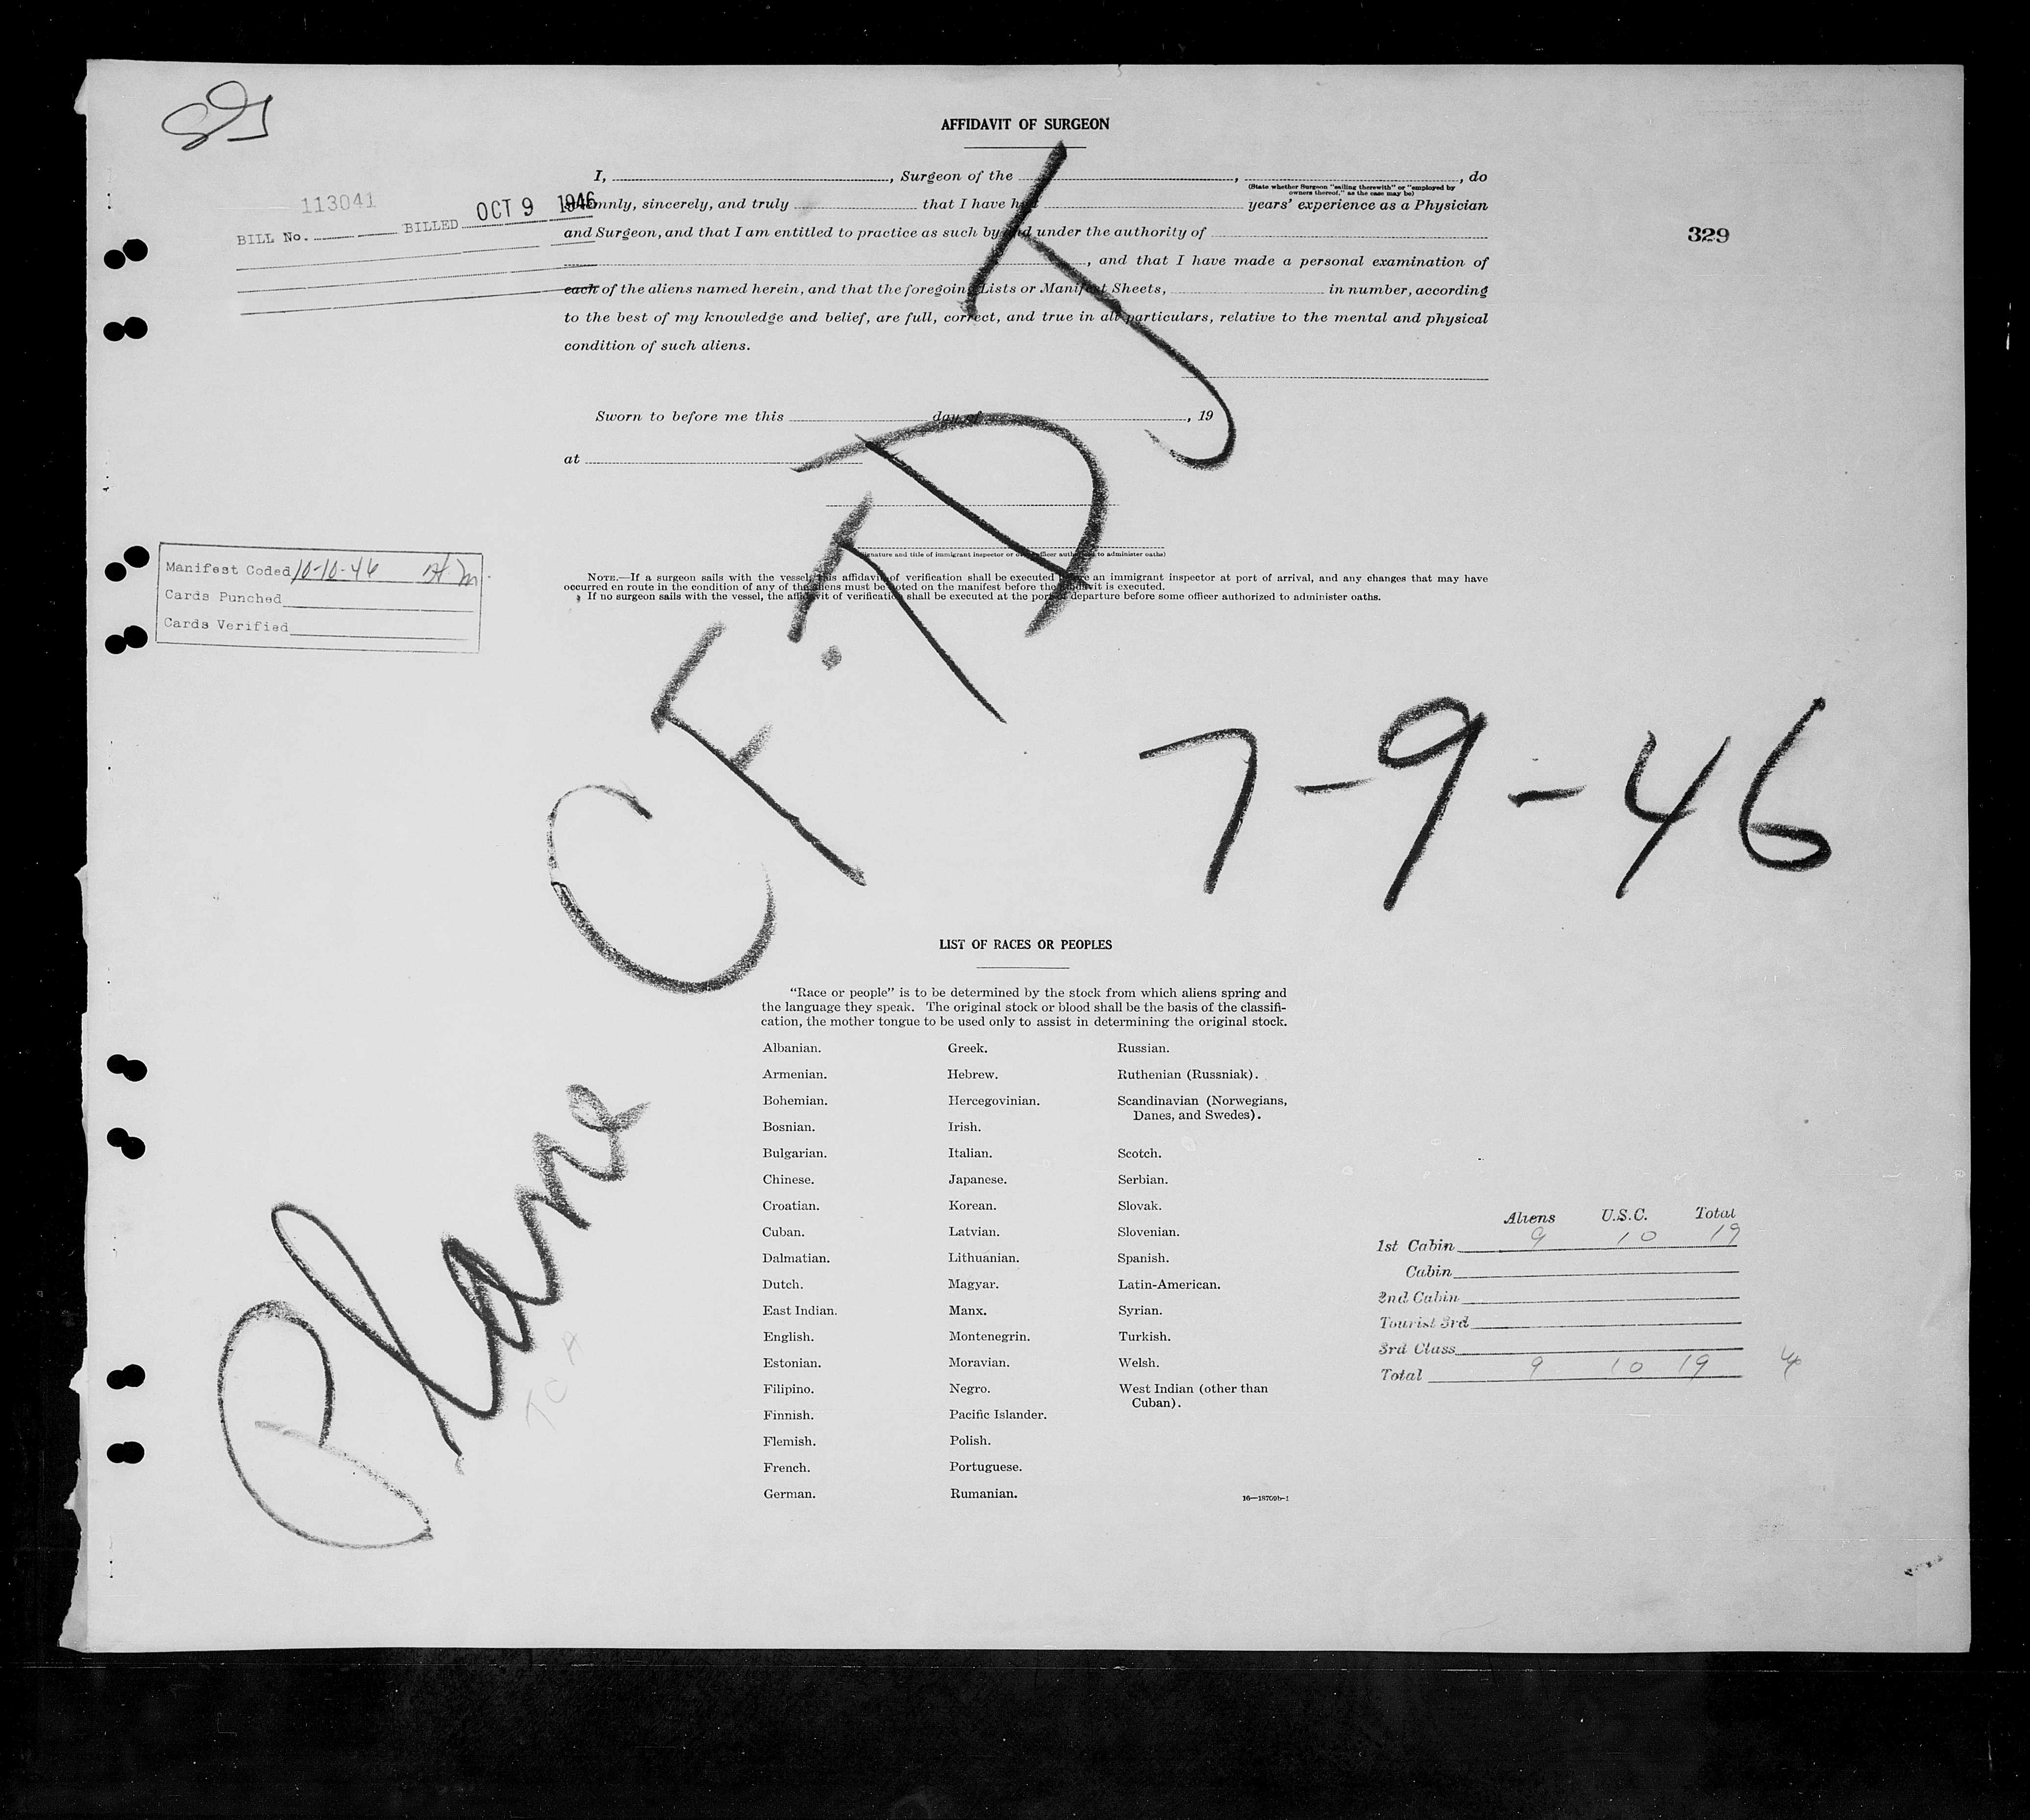 AFFIDAVIT OF SURGEON
I, , Surgeon of the , , do
(State whether Surgeon "sailing therewith" or "employed by
owners thereof," as the case may be)
solemnly, sincerely, and truly that I have had years' experience as a Physician
and Surgeon, and that I am entitled to practice as such by and under the authority of
, and that I have made a personal examination of
each of the aliens named herein, and that the foregoing Lists or Manifest Sheets, in number, according
to the best of my knowledge and belief, are full, correct, and true in all particulars, relative to the mental and physical
condition of such aliens.
Sworn to before me this day of , 19
at
(Signature and title of immigrant inspector or other officer authorized to administer oaths)
NOTE.—If a surgeon sails with the vessel, this affidavit of verification shall be executed before an immigrant inspector at port of arrival, and any changes that may have
occurred en route in the condition of any of the aliens must be noted on the manifest before the affidavit is executed.
If no surgeon sails with the vessel, the affidavit of verification shall be executed at the port of departure before some officer authorized to administer oaths.
113041
BILL No. BILLED OCT 9 1946
329
Manifest Coded 10-10-46
Cards Punched
Cards Verified
Plane CF:TDJ
7-9-46
LIST OF RACES OR PEOPLES
"Race or people" is to be determined by the stock from which aliens spring and
the language they speak. The original stock or blood shall be the basis of the classifi-
cation, the mother tongue to be used only to assist in determining the original stock.
Albanian. Greek. Russian.
Armenian. Hebrew. Ruthenian (Russniak).
Bohemian. Hercegovinian. Scandinavian (Norwegians,
Danes, and Swedes).
Bosnian. Irish.
Bulgarian. Italian. Scotch.
Chinese. Japanese. Serbian.
Croatian. Korean. Slovak.
Cuban. Latvian. Slovenian.
Dalmatian. Lithuanian. Spanish.
Dutch. Magyar. Latin-American.
East Indian. Manx. Syrian.
English. Montenegrin. Turkish.
Estonian. Moravian. Welsh.
Filipino. Negro. West Indian (other than
Cuban).
Finnish. Pacific Islander.
Flemish. Polish.
French. Portuguese.
German. Rumanian.
16—18709b-1
Aliens U.S.C. Total
1st Cabin 9 10 19
Cabin
2nd Cabin
Tourist 3rd
3rd Class
Total 9 10 19
TCA